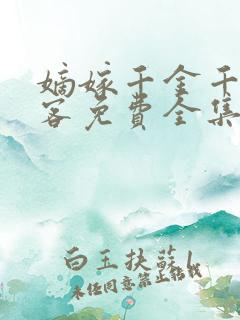 嫡嫁千金千
客免費全集
白玉扶蘇l
未经同意禁止转载